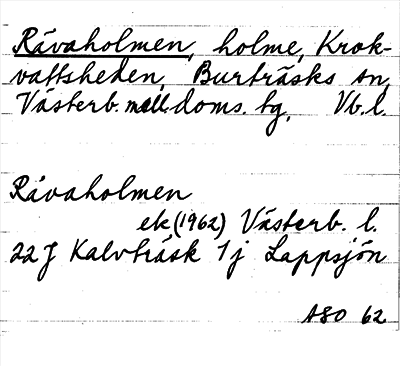 Råvaholmen, holme, Krok-
vattsheden, Burträsks sn,
Västerb. mell. doms. tg, Vb. l.
Råvaholmen
ek (1962) Västerb. l.
22 J Kalvträsk 7 j Lappsjön
ASO 62